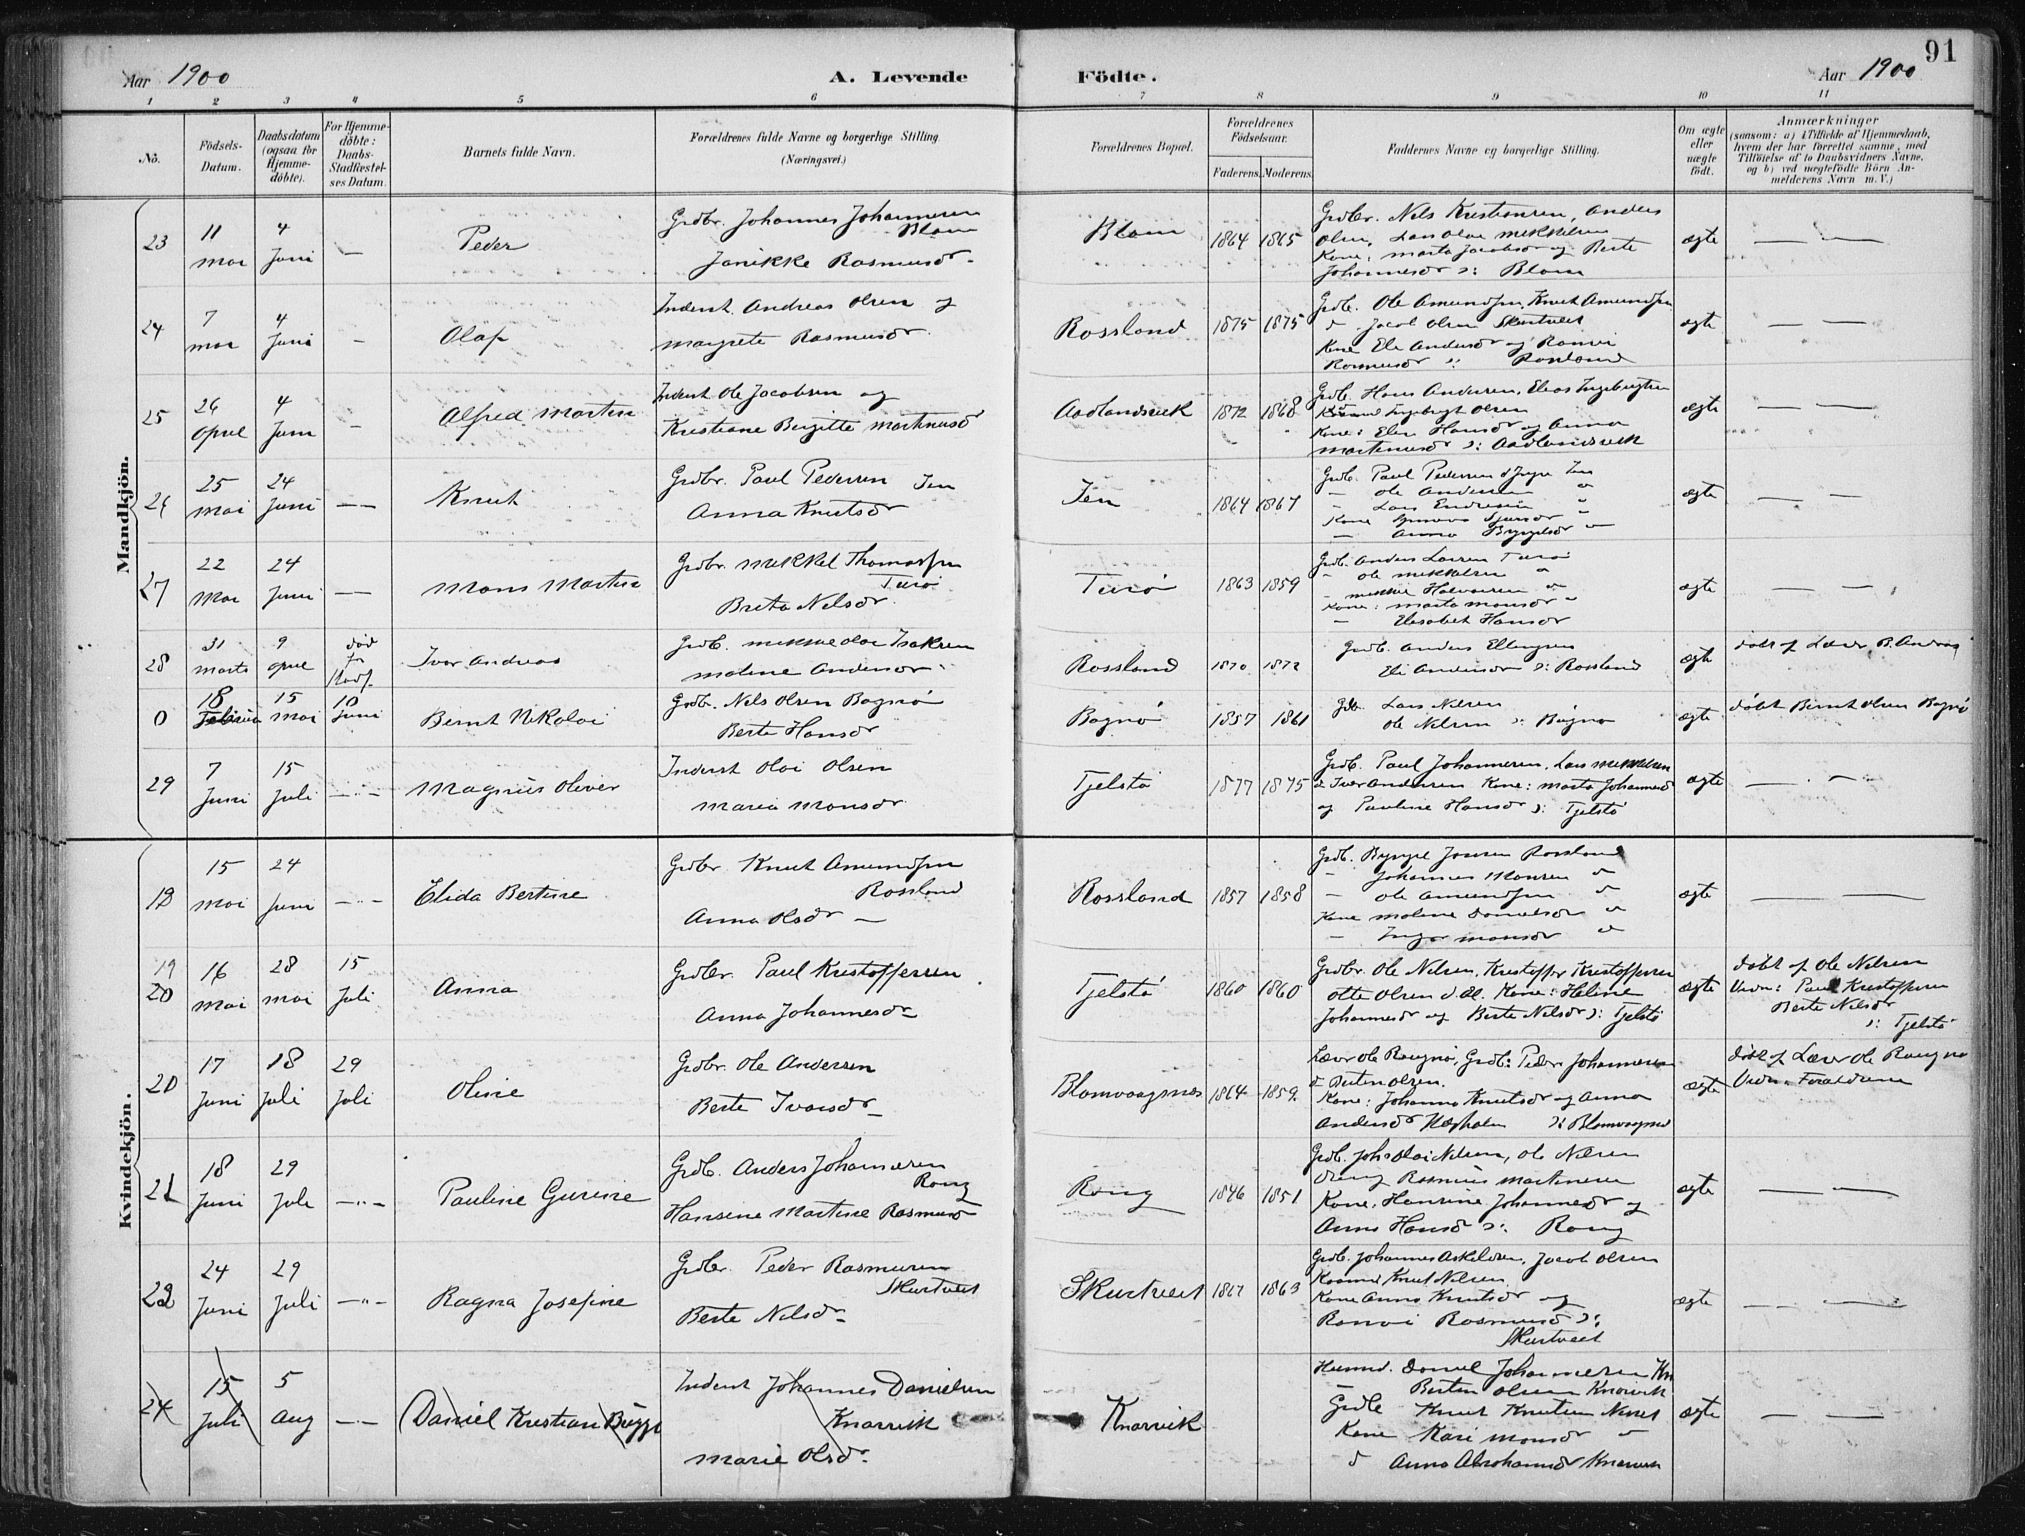 91
Aar 1900 A. Levende Födte. Aar 1900
1 2 3 4 5 6 7 8 9 10 11
No.
Födsels-
Datum.
Daabsdatum
(ogsaa for
Hjemme-
döbte).
For Hjemme-
döbte:
Daabs-
Stadfæstel-
ses Datum.
Barnets fulde Navn.
Forældrenes fulde Navne og borgerlige Stilling.
(Næringsvei.)
Forældrenes Bopæl.
Forældrenes
Födselsaar.
Faderens. Moderens.
Faddernes Navne og borgerlige Stilling.
Om ægte
eller
uægte
födt.
Anmærkninger
(saasom: a) i Tilfælde af Hjemmedaab,
hvem der har forrettet samme, med
Tilföielse af to Daabsvidners Navne,
og b) ved uægtefödte Börn An-
melderens Navn m. V.)
Mandkjön.
23
11
mai
4
Juni
—
Peder
Grdbr. Johannes Johannesen
Blom
Janikke Rasmusdr.
Blom
1864 1865
Grdbr. Nils Kristiansen, Anders
Olsen, Lars Olai Mikkelsen
Kone: Marta Jacobsdr og Berte
Johannesdr ɔ: Blom
ægte
— —
24
7
mai
4
Juni
-
Olaf
Inderst. Andreas Olsen og
Margrete Rasmusdr.
Rossland
1875 1875
Grdb. Ole Amundsen, Knut Amundsen
d Jacob Olsen Skurtveit
Kone Eli Andersdr og Ranvei
Rasmusdr ɔ: Rossland
ægte
— —
25
26
april
4
Juni
-
Alfred Martin
Inderst Ole Jacobsen og
Kristiane Birgitte Martinusd
Aadlandsvik
1872 1868
Grdb. Hans Andersen, Elias Ingebrigtsen
Ingebrigt Olsen
Kone: Elen Hansdr og Anna
Martinusdr ɔ: Aadlandsvik
ægte
— —
26
25
mai
24
Juni
——
Knut
Grdbr. Paul Pedersen Jen
Anna Knutsdr
Jen
1864 1867
Grdb. Paul Pedersen
- Ole Andersen "
- Lars Endresen "
Kone
— Anna
ægte
— —
27
22
Mai
24
Juni
—
Mons Martin
Grdbr. Mikkel Thomassen
Turö
Brita Nilsdr.
Turö
1863 1859
Grdb. Anders Larsen Turö
- Ole Mikkelsen "
- Mikkel Halvorsen "
Kone: Marta Monsdr "
— Elisabet Hansdr
ægte
— —
28
31
marts
9
april
död
før
stadf.
Ivar Andreas
Grdb. Mikkel Olai Isaksen
Maline Andersdr.
Rossland
1870 1872
Grdb. Anders Ellingsen
Eli Andersdr ɔ: Rossland
ægte
döbt af Lærer B. Andrås
0
18
15
mai
10
Juni
Bernt Nikolai
Grdb. Nils Olsen Bognö
Berte Hansdr
Bognö
1857 1861
Gdb. Lars Nilsen
Ole Nilsen ɔ: Bognö
ægte
döbt Bernt Olsen Bognö
29
7
Juni
15
Juli
—"—
Magnus Oliver
Inderst Olai Olsen
Maria Monsdr
Tjelstö
1877 1875
Grdb. Paul Johannesen, Lars Mikkelsen
& Iver Andersen Kone: Marta Johannesd
og Pauline Hansdr ɔ: Tjelstö
ægte
— —
Kvindekjön.
18
15
mai
24
Juni
—"—
Elida Bertine
Grdbr Knut Amundsen
Rossland
Anna Olsdr —
Rossland
1857 1858
Grdb. Jonsen Rossland
- Johannes Monsen "
— Ole Amundsen "
Kone Maline Danielsdr "
— Inger Monsdr "
ægte
— —
19
20
16
mai
28
mai
15
Juli
Anna
Grdbr. Paul Kristoffersen
Anna Johannesdr
Tjelstö
1860 1860
Grdbr. Ole Nilsen, Kristoffer Kristoffersen
Otte Olsen d æl. Kone: Heline
Johannesdr og Berte Nilsdr ɔ: Tjelstö
ægte
döbt af Ole Nilsen
Vidn: Paul Kristoffersen
Berte Nilsdr
ɔ: Tjelstö
20
17
Juni
18
Juli
29
Juli
Oline
Grdbr. Ole Andersen
Berte Ivarsdr
Blomvaagsnes
1864 1859
Lærer Ole Rongnö, Grdb: Peder Johannesen
& Bertin Olsen.
Kone: Johanna Knutsdr og Anna
Andersdr ɔ: Blomvaagsnes
ægte
döbt af Lærer Ole Rongnö
Vidn: Forældrene
21
18
Juni
29
Juli
—"—
Pauline Gurine
Grdb. Anders Johannesen
Rong
Hansine Martine Rasmusd
Rong
1846 1851
Grdb. Johs Olai Nilsen, Ole Nilsen
Dreng Rasmus Martinusen
Kone: Hansine Johannesdr og
Anna Hansdr ɔ: Rong
ægte
— —
22
24
Juni
29
Juli
—"—
Ragna Josefine
Grdbr. Peder Rasmusen
Skurtveit
Berte Nilsdr
Skurtveit
1867 1863
Grdb. Johannes Askildsen, Jacob Olsen
Knut Nilsen
Kone Anna Knutsdr og
Ranvei Rasmusdr ɔ:
Skurtveit
ægte
— —
24
15
Juli
5
Aug
—"—
Daniel Kristian
Inderst Johannes Danielsen
Knarvik
Marie Olsdr.
Knarvik
Huusmd. Daniel Johannesen Kn
Bertin Olsen Knarvik
Grdb Knut Knutsen
Kone Kari Monsdr "
d Anna Abrahamsdr Knarvik
ægte
— —